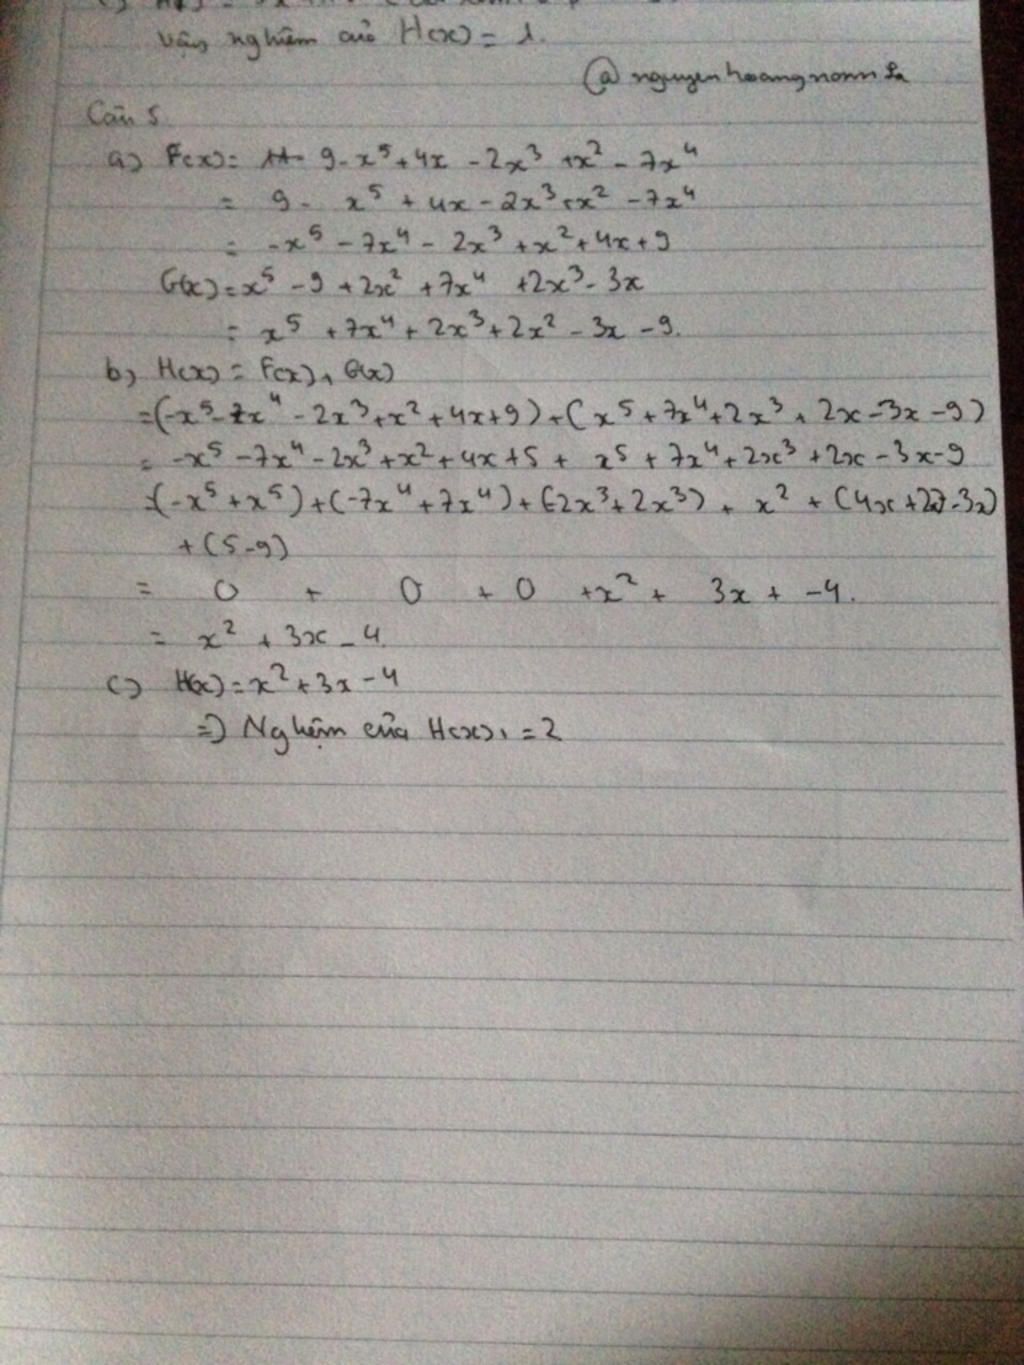 Vậy nghiệm của H(x) = 1.
@ nguyenhoangnam
Câu 5
a) F(x) = 9 - x⁵ + 4x - 2x³ + x² - 7x⁴
= 9 - x⁵ + 4x - 2x³ + x² - 7x⁴
= -x⁵ - 7x⁴ - 2x³ + x² + 4x + 9
G(x) = x⁵ - 9 + 2x² + 7x⁴ + 2x³ - 3x
= x⁵ + 7x⁴ + 2x³ + 2x² - 3x - 9.
b) H(x) = F(x) + G(x)
= (-x⁵ - 7x⁴ - 2x³ + x² + 4x + 9) + (x⁵ + 7x⁴ + 2x³ + 2x - 3x - 9)
= -x⁵ - 7x⁴ - 2x³ + x² + 4x + 5 + x⁵ + 7x⁴ + 2x³ + 2x - 3x - 9
= (-x⁵ + x⁵) + (-7x⁴ + 7x⁴) + (-2x³ + 2x³) + x² + (4x + 2x - 3x)
+ (5 - 9)
= 0 + 0 + 0 + x² + 3x + -4.
= x² + 3x - 4.
c) H(x) = x² + 3x - 4
=> Nghiệm của H(x) = 2